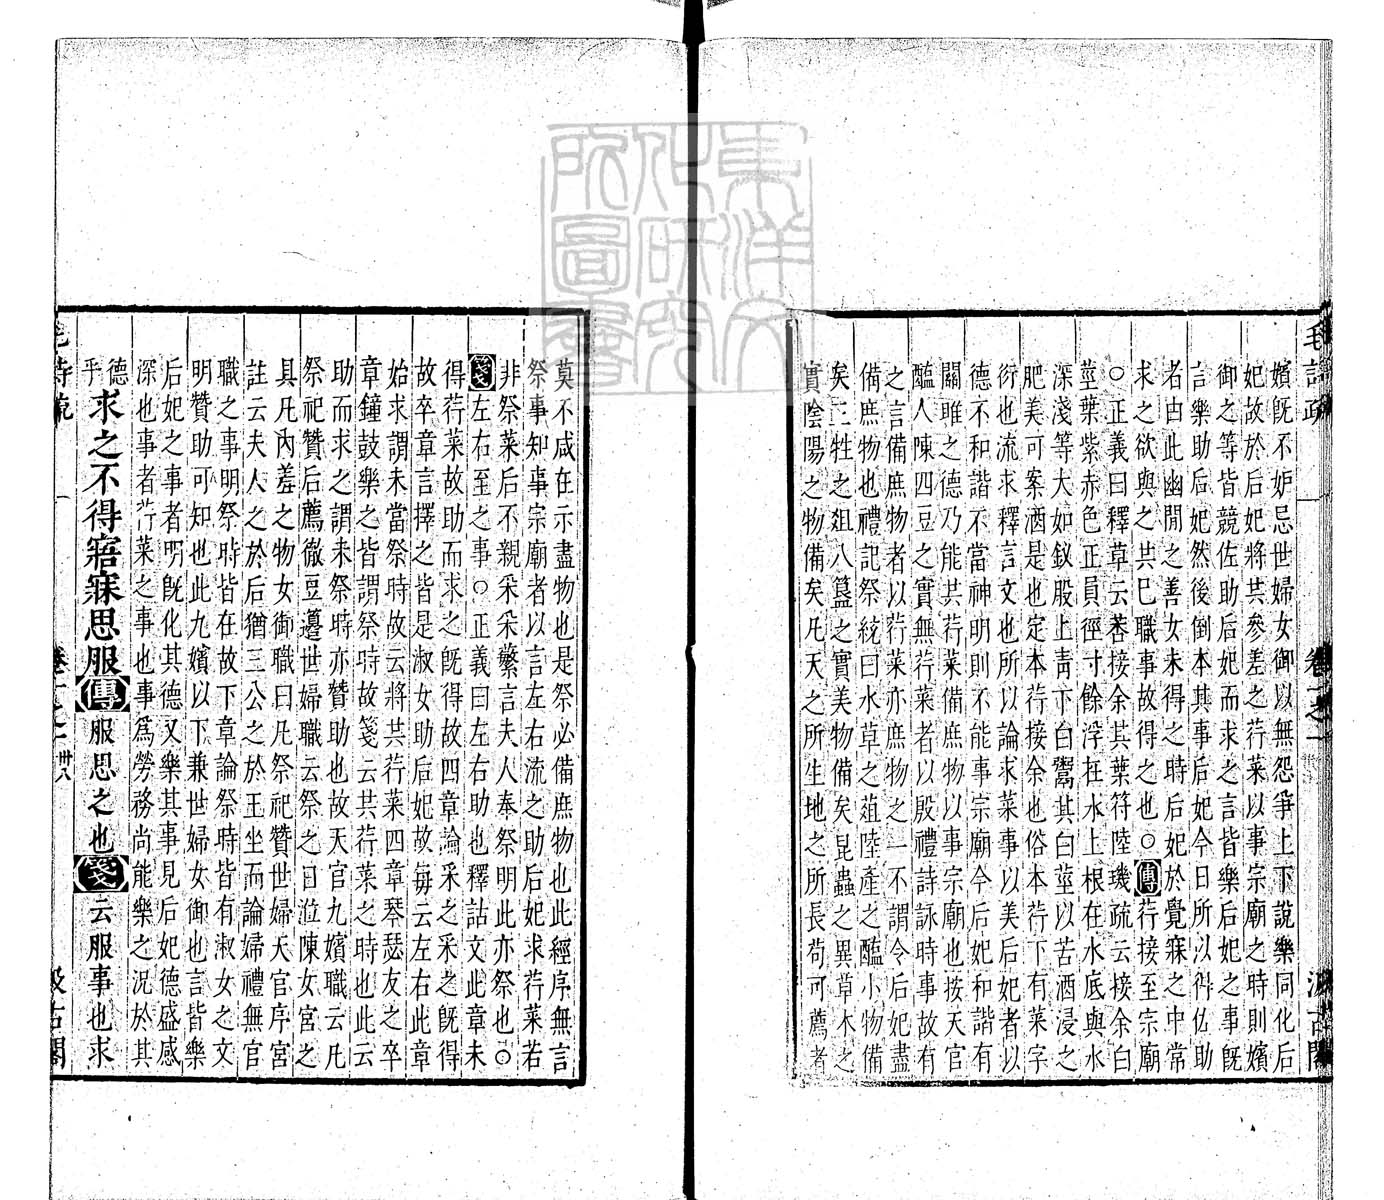 毛詩疏
卷一之一
汲古閣
嬪既不妒忌世婦女御以無怨爭上下說樂同化后
妃故於后妃將共參差之荇菜以事宗廟之時則嬪
御之等皆競佐助后妃而求之言皆樂后妃之事既
言樂助后妃然後倒本其事后妃今日所以得佐助
者由此幽閒之善女未得之時后妃於覺寐之中常
求之欲與之共已職事故得之也○傳荇接至宗廟
○正義曰釋草云莕接余其葉符陸璣疏云接余白
莖葉紫赤色正員徑寸餘浮在水上根在水底與水
深淺等大如釵股上青下白鬻其白莖以苦酒浸之
肥美可案酒是也定本荇接余也俗本荇下有菜字
衍也流求釋言文也所以論求菜事以美后妃者以
德不和諧不當神明則不能事宗廟今后妃和諧有
關雎之德乃能共荇菜備庶物以事宗廟也按天官
醢人陳四豆之實無荇菜者以殷禮詩詠時事故有
之言備庶物者以荇菜亦庶物之一不謂今后妃盡
備庶物也禮記祭統曰水草之菹陸產之醢小物備
矣三牲之俎八簋之實美物備矣昆蟲之異草木之
實陰陽之物備矣凡天之所生地之所長苟可薦者
莫不咸在示盡物也是祭必備庶物也此經序無言
祭事知事宗廟者以言左右流之助后妃求荇菜若
非祭菜后不親采采蘩言夫人奉祭明此亦祭也○
箋左右至之事○正義曰左右助也釋詁文此章未
得荇菜故助而求之既得故四章論采之采之既得
故卒章言擇之皆是淑女助后妃故每云左右此章
始求謂未當祭時故云將共荇菜四章琴瑟友之卒
章鐘鼓樂之皆謂祭時故箋云共荇菜之時也此云
助而求之謂未祭時亦贊助也故天官九嬪職云凡
祭祀贊后薦徹豆籩世婦職云祭之日涖陳女宮之
具凡內羞之物女御職曰凡祭祀贊世婦天官序官
註云夫人之於后猶三公之於王坐而論婦禮無官
職之事明祭時皆在故下章論祭時皆有淑女之文
明贊助可知也此九嬪以下兼世婦女御也言皆樂
后妃之事者明既化其德又樂其事見后妃德盛感
深也事者荇菜之事也事為勞務尚能樂之況於其
德乎
求之不得寤寐思服傳服思之也箋云服事也求
毛詩疏
卷一之一
卅八
汲古閣
東洋文
化研究
所圖書